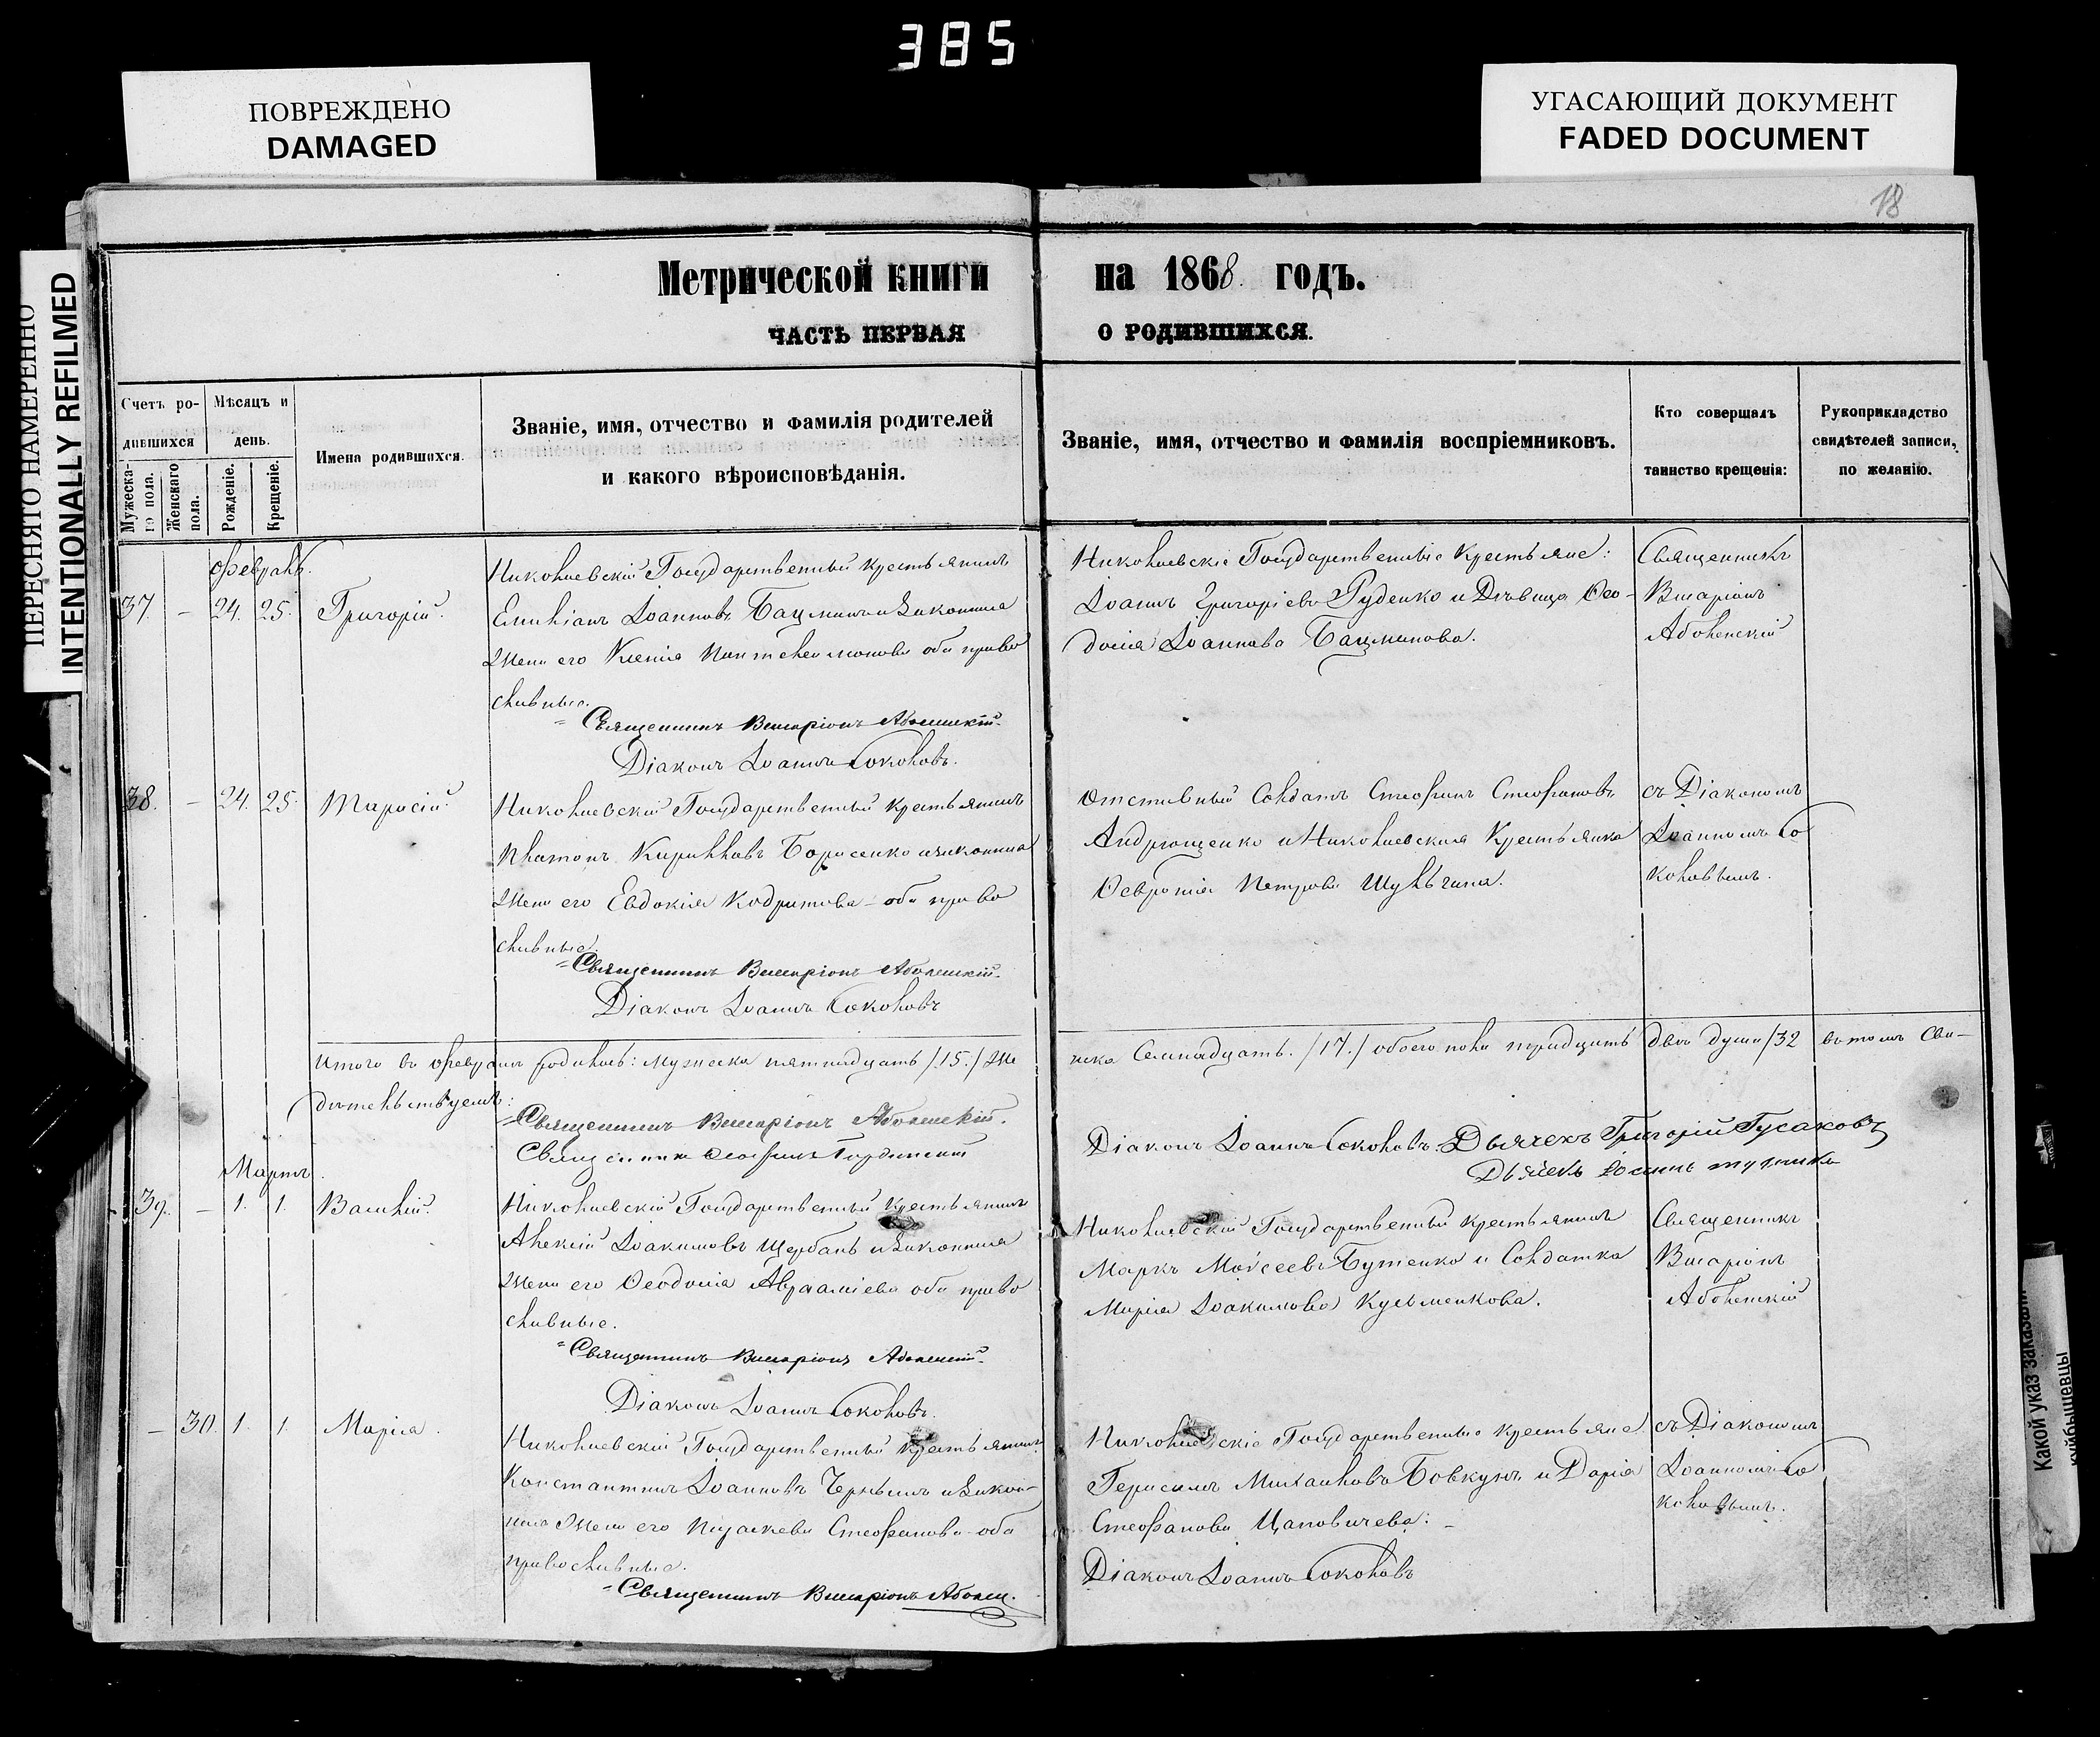 385
ПОВРЕЖДЕНО
DAMAGED
УГАСАЮЩИЙ ДОКУМЕНТ
FADED DOCUMENT
ПЕРЕСНЯТО НАМЕРЕННО
INTENTIONALLY REFILMED
18
Метрической книги на 1868. годъ.
ЧАСТЬ ПЕРВАЯ О РОДИВШИХСЯ.
Счетъ ро-
дившихся
Мужеска-
го пола.
Женскаго
пола.
Мѣсяцъ и
день.
Рожденіе.
Крещеніе.
Имена родившихся.
Званіе, имя, отчество и фамилія родителей
и какого вѣроисповѣданія.
Званіе, имя, отчество и фамилія воспріемниковъ.
Кто совершалъ
таинство крещенія:
Рукоприкладство
свидѣтелей записи,
по желанію.
Февраль.
37. – 24. 25. Григорій.
Николаевскій Государственный крестьянинъ
Емиліанъ Іоанновъ Бацманъ и законная
жена его Ксенія Пантелеимонова оба право
славные.
Священникъ Виссаріонъ Аболенскій.
Діаконъ Іоаннъ Соколовъ.
Николаевскіе Государственные Крестьяне:
Іоаннъ Григоріевъ Руденко и Дѣвица Ѳео-
досія Іоаннова Бацманова.
Священникъ
Висаріонъ
Аболенскій
38. – 24. 25. Тарасій.
Николаевскій Государственный крестьянинъ
Платонъ Кирилловъ Борисенко и законная
жена его Евдокія Кодратова – оба право
славные.
Священникъ Виссаріонъ Аболенскій.
Діаконъ Іоаннъ Соколовъ
Отставный Солдатъ Стефанъ Стефановъ
Андрющенко и Николаевская Крестьянка
Ѳевронія Петрова Шульгина.
съ Діакономъ
Іоанномъ Со
коловымъ.
Итого въ Февралѣ родилось: мужеска пятнадцать /15./ же
нска Семнадцать. /17./ обоего пола тридцать двѣ души /32 въ томъ Сви-
дѣтельствуемъ:
Священникъ Виссаріонъ Аболенскій.
Священникъ
Діаконъ Іоаннъ Соколовъ. Дьячекъ Григорій Гусаковъ
Дьячекъ
Мартъ.
39. – 1. 1. Василій.
Николаевскій Государственный крестьянинъ
Алексій Іоакимовъ Щербань и законная
жена его Ѳеодосія Авраамієва оба право
славные.
Священникъ Виссаріонъ Аболенскій.
Діаконъ Іоаннъ Соколовъ.
Николаевскій Государственный крестьянинъ
Маркъ Моѵсеевъ Бутенко и Солдатка
Марія Іоакимова Кузьменкова.
Священникъ
Висаріонъ
Аболенскій
– 30. 1. 1. Марія.
Николаевскій Государственный крестьянинъ
Константинъ Іоанновъ Чернышъ и закон-
ная жена его Параскева Стефанова – оба
православные.
Священникъ Виссаріонъ Аболен.
Николаевскіе Государственные крестьяне
Герасимъ Михаиловъ Бовкунъ и Дарія
Стефанова Цаповичева:
Діаконъ Іоаннъ Соколовъ
съ Діакономъ
Іоанномъ Со
коловымъ.
Какой указ заказали
куйбышевцы